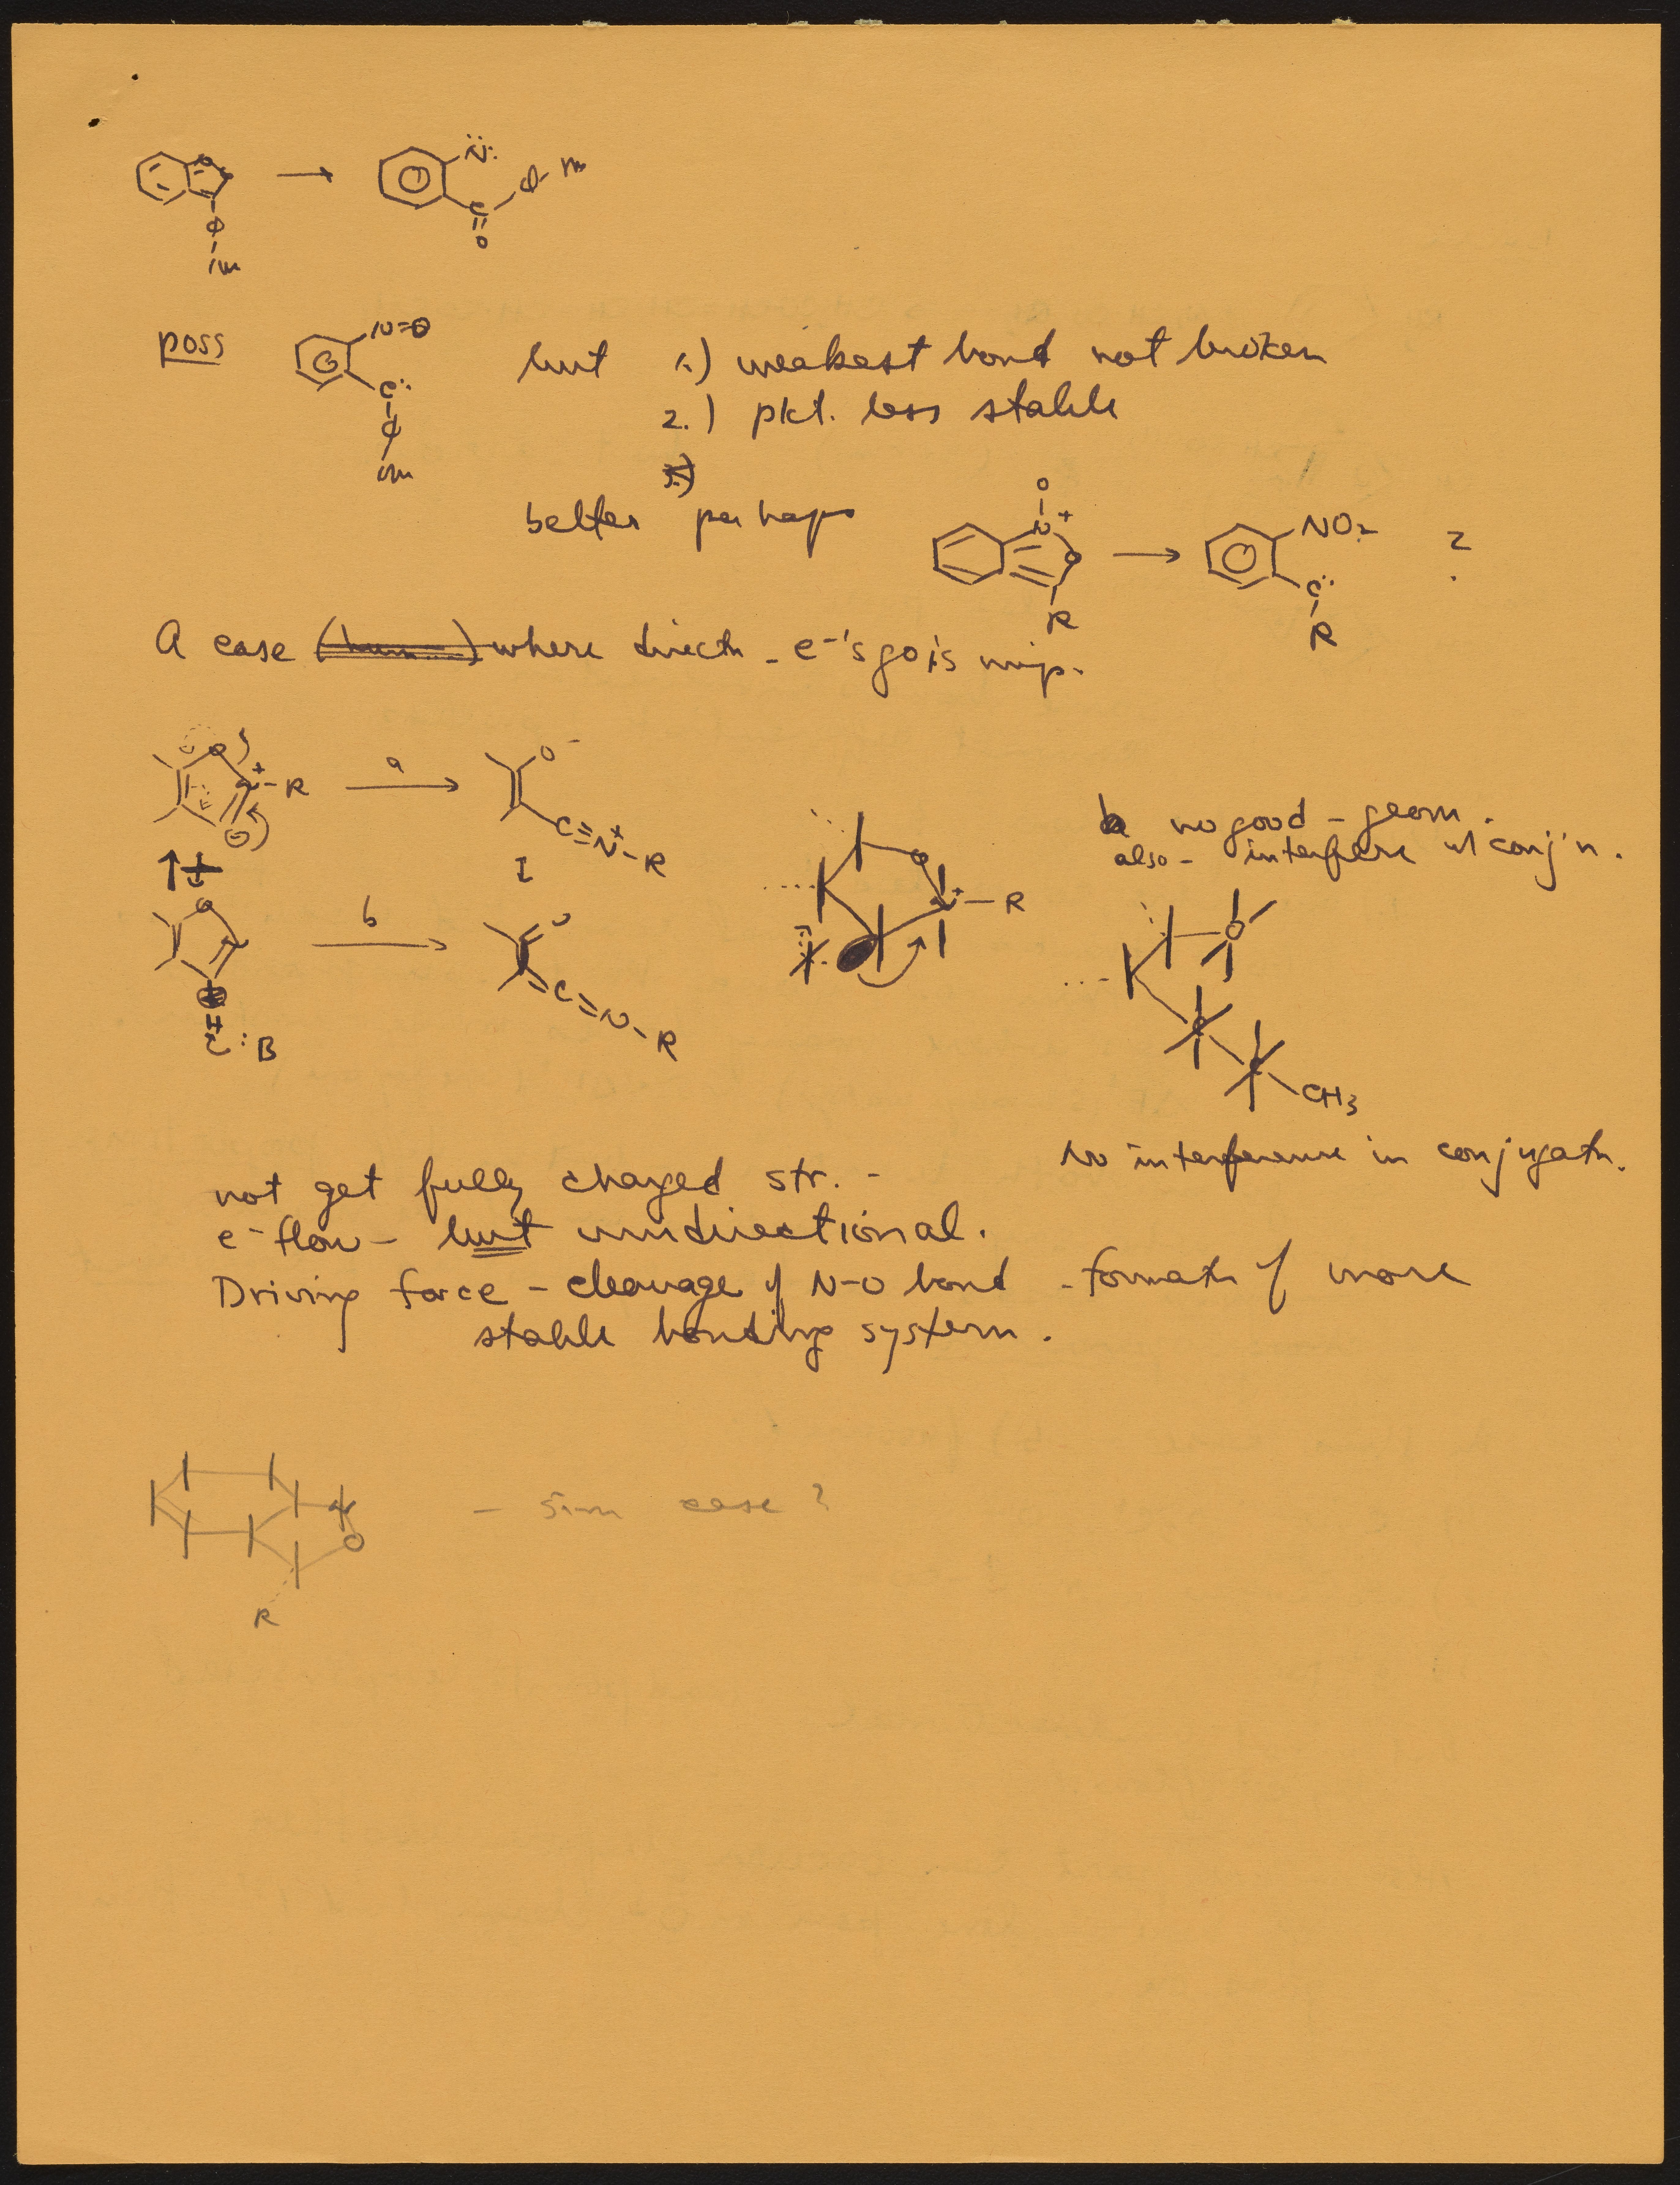 N̈:
C
O
O
poss
N=O
C:
but 1.) weakest bond not broken
2.) pkt. less stable
better perhaps
O
N+
O
R
NO2
C:
R
?
A case where directn - e-'s go is imp.
O
N+-R
a
O-
C≡N+-R
b
O
C=N-R
H
:B
O
N+-R
b no good - geom.
also - interfere w/ conj'n.
O
C
CH3
No interference in conjugatn.
not get fully charged str. -
e- flow - but unidirectional.
Driving force - cleavage of N-O bond - formatn of more
stable bonding system.
O
R
- Sim case?